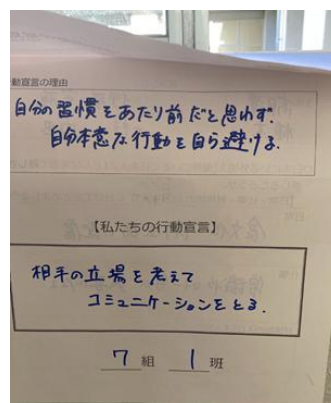 動宣言の理由
自分の習慣をあたり前だと思わず、
自分本意な行動を自ら避ける。
【私たちの行動宣言】
相手の立場を考えて
コミュニケーションをとる。
7組 1班